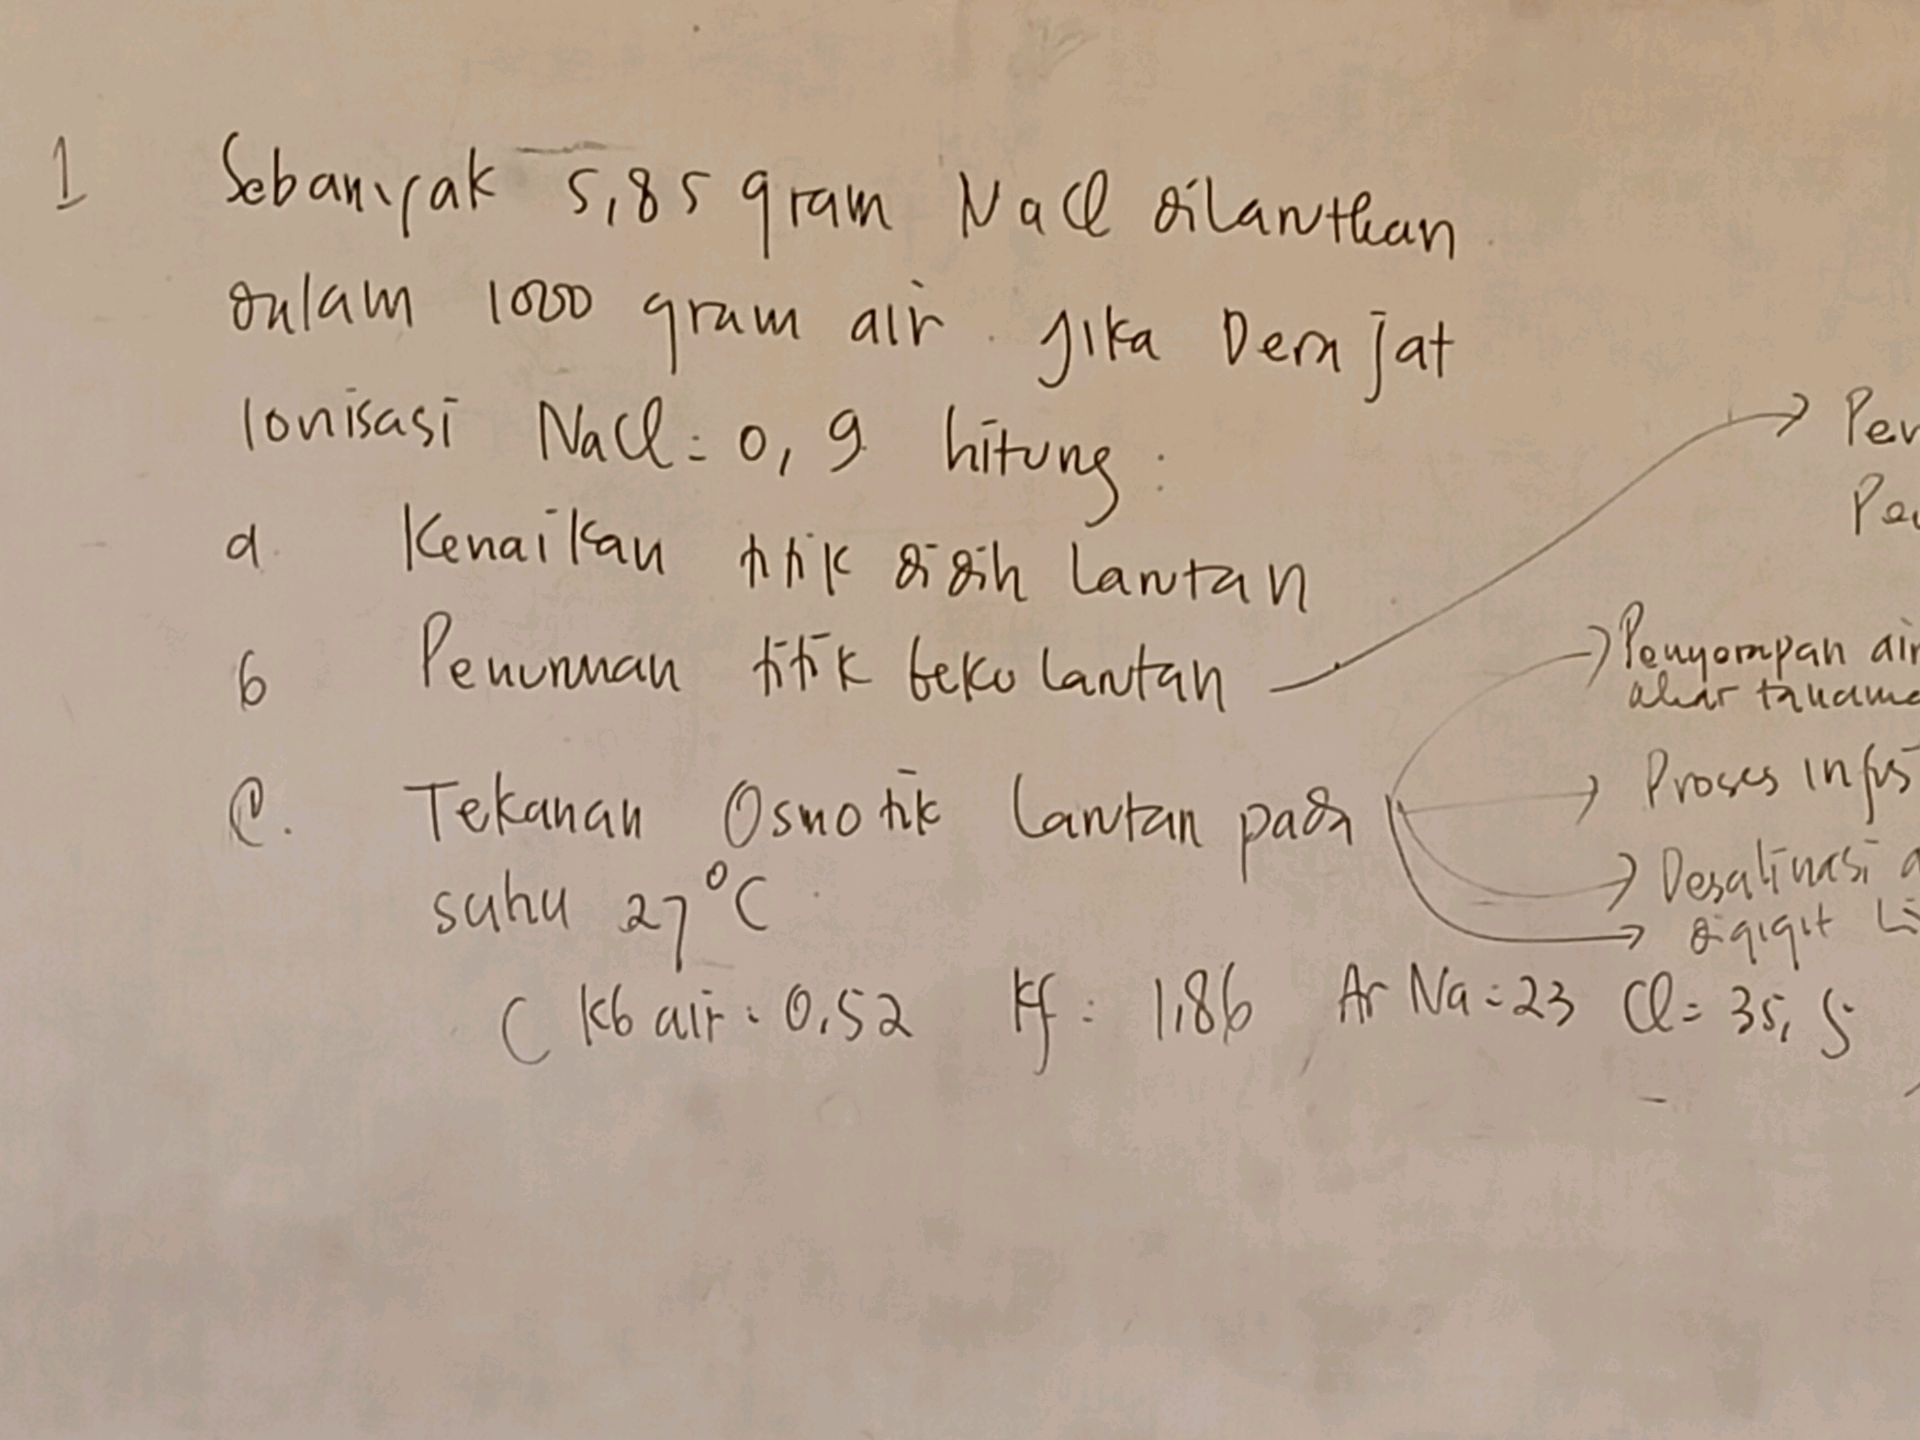 1 Sebanyak 5,85 gram NaCl dilarutkan
dalam 1000 gram air. Jika Derajat
Ionisasi NaCl = 0,9 hitung :
a. Kenaikan titik didih Larutan
b Penurunan titik beku larutan
c. Tekanan Osmotik larutan pada
suhu 27°C.
( Kb air : 0,52 Kf : 1,86 Ar Na = 23 Cl = 35,5
Penyerapan air
akar
Proses infus
Desalinasi
digigit